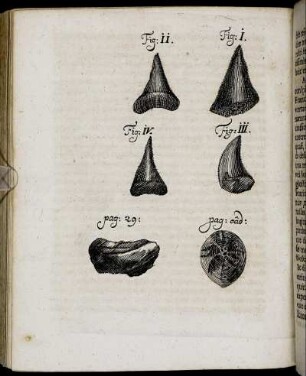 Fig: ii. Fig: i.
Fig: iv. Fig: iii.
pag: 29: pag: oad: